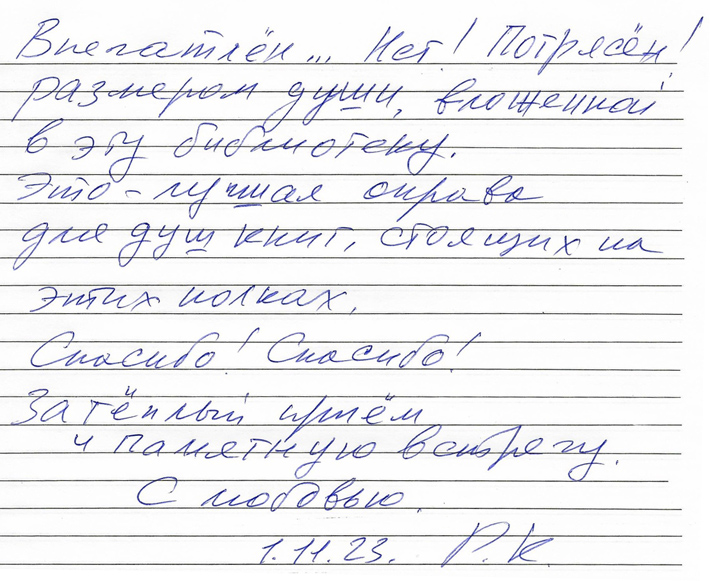 Впечатлён... Нет! Потрясён!
размером души, вложенной
в эту библиотеку.
Это - лучшая оправа
для душ книг, стоящих на
этих полках.
Спасибо! Спасибо!
За тёплый приём
и памятную встречу.
С любовью.
1.11.23. Р.К.